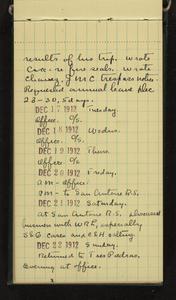 results of his trip. Wrote
Case re fur seals. Wrote
Chaney, J M C trespass notes.
Requested annual leave Dec
23-30, 5 days.
DEC 17 1912 Tuesday
Office. O/c
DEC 18 1912 Wednes.
Office. O/c
DEC 19 1912 Thurs.
Office O/c
DEC 20 1912 Friday.
AM - Office.
PM - to San Antone R.S.
DEC 21 1912 Saturday.
At San Antone R.S. discussed
business with WRL, especially
S&G cases and G&H
DEC 22 1912 Sunday.
Returned to Tres Piedras.
Evening at office.